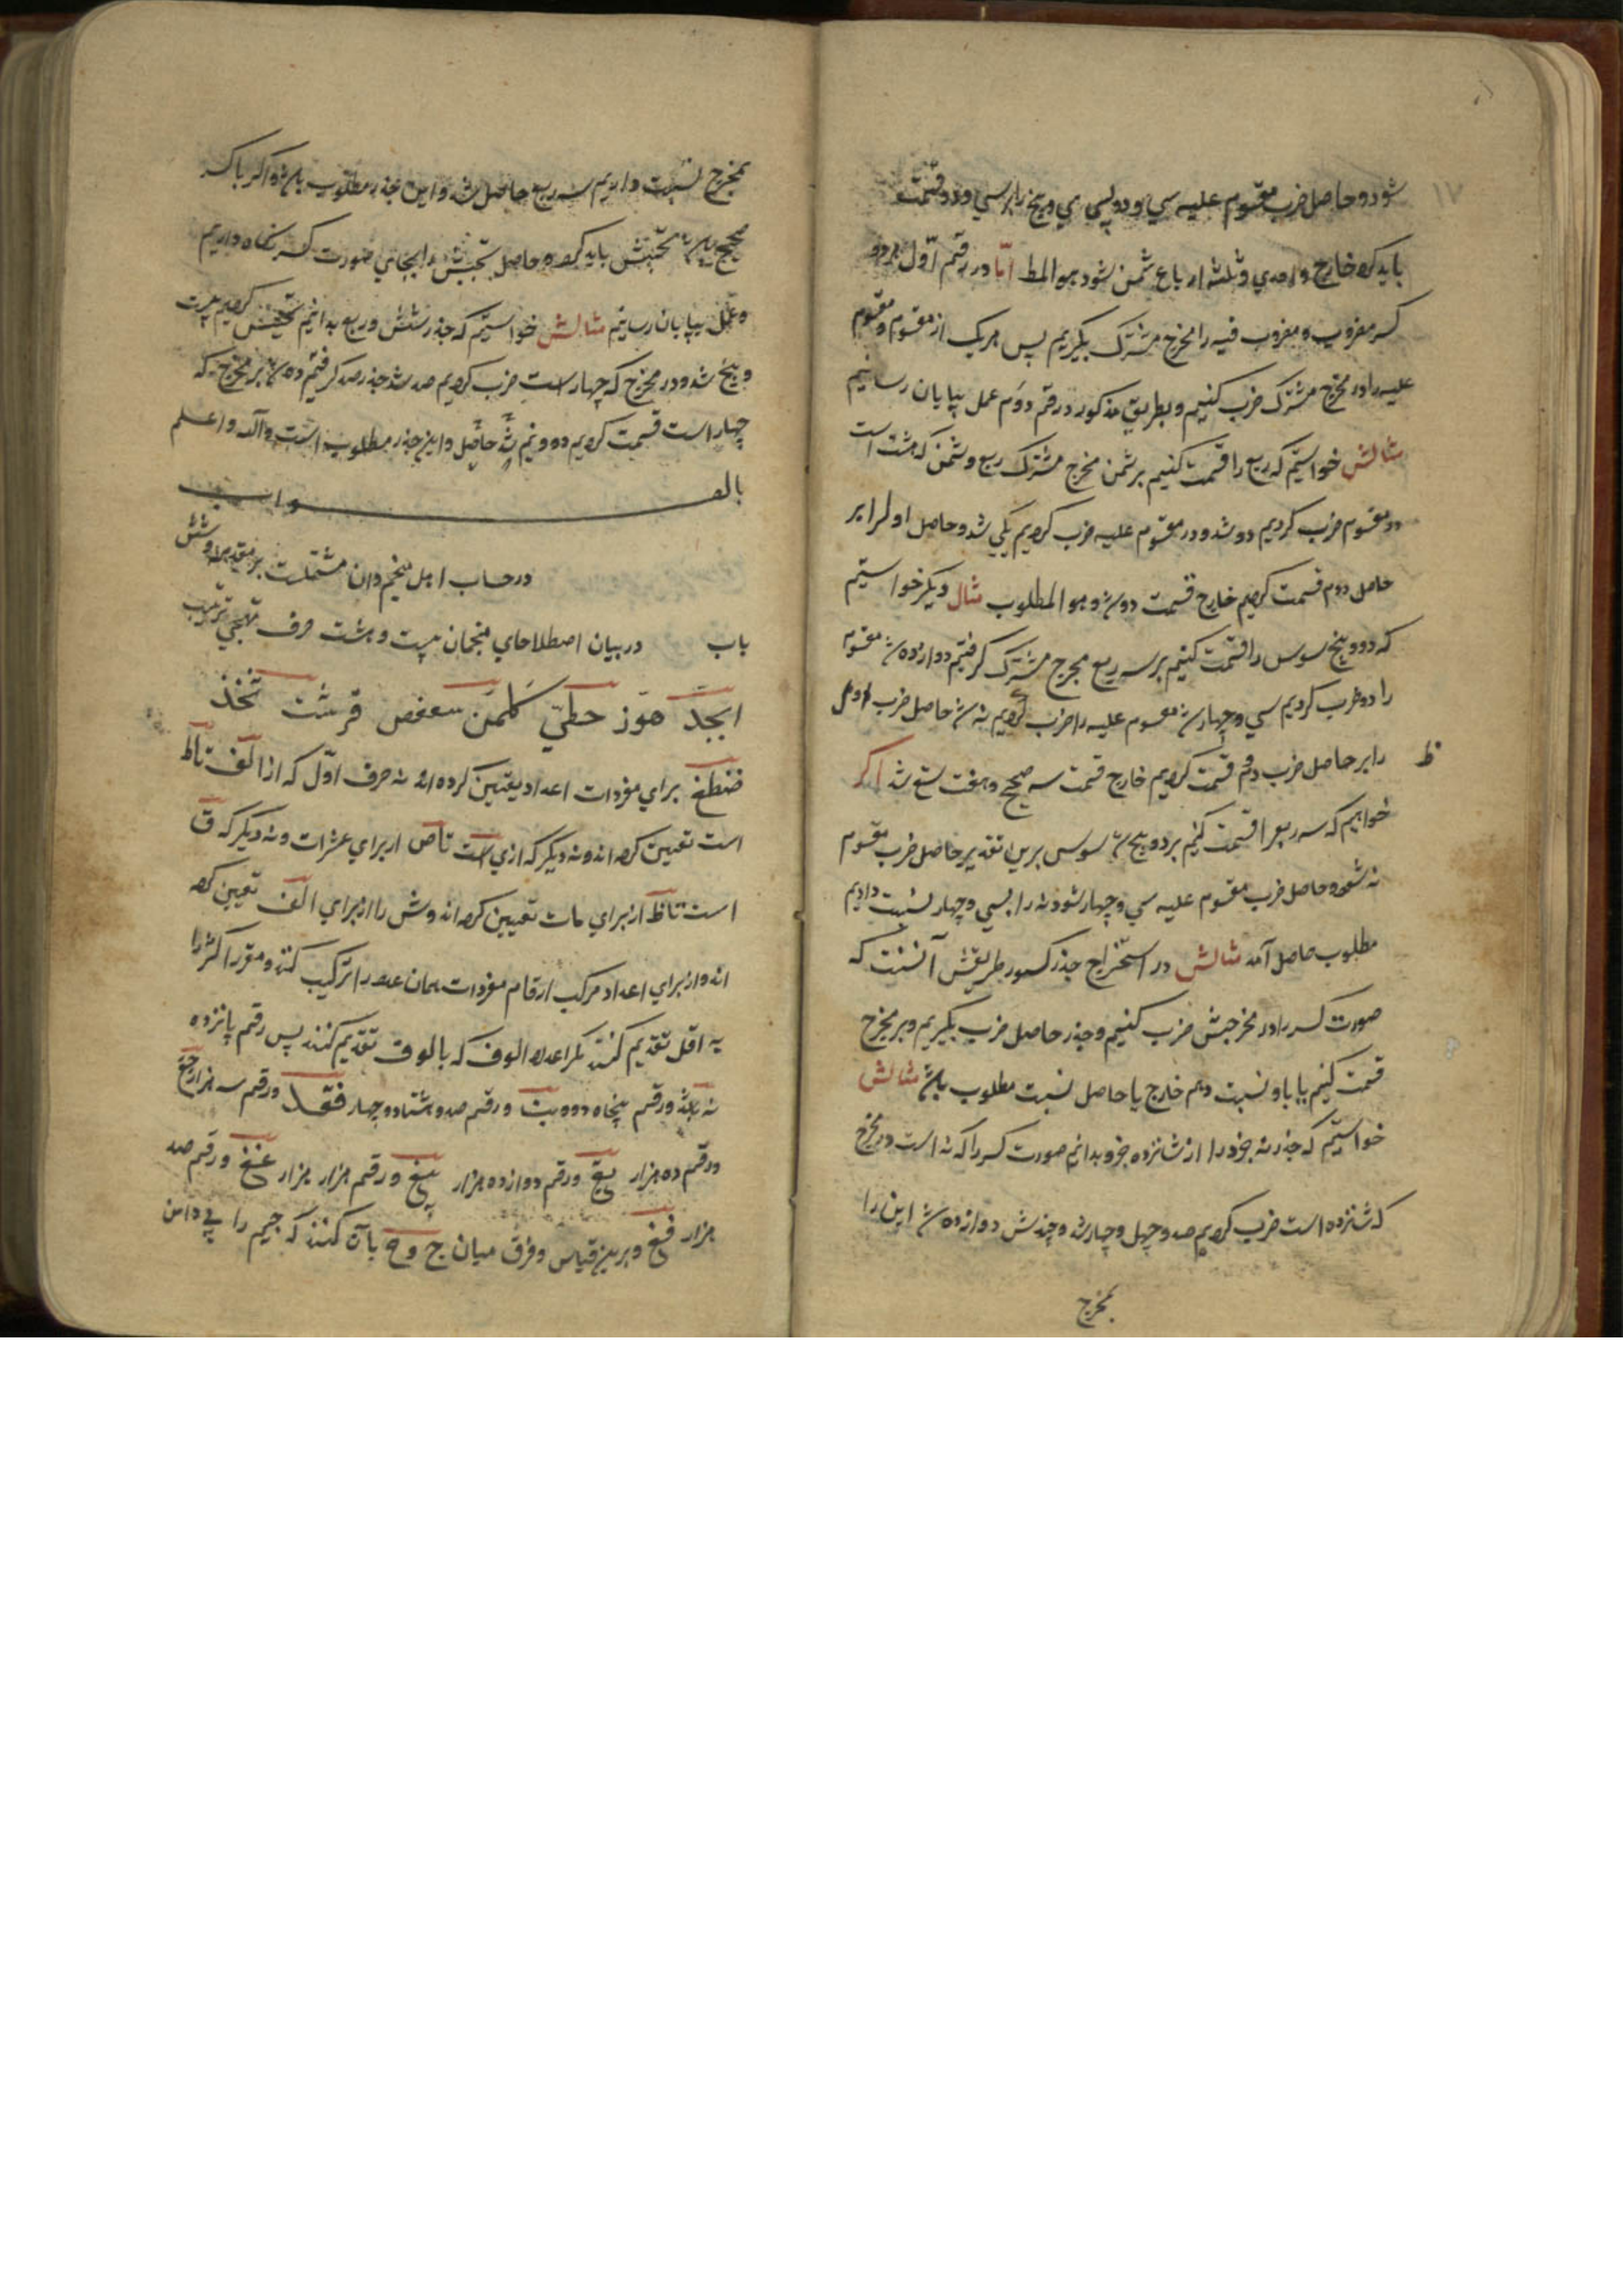 ۱۷
شود و حاصل ضرب مقسوم علیه سی و دو پس سی و پنج را بر سی و دو قسمت
باید کرد خارج واحدی و ثلثه ارباع ثمن شود هو المط اما در رقم اول هر دو
کسر مضروب و مضروب فیه را مخرج مشترک بگیریم پس هر یک از مقسوم و مقسوم
علیه را در مخرج مشترک ضرب کنیم و بطریق مذکور در رقم دوم عمل بپایان رسانیم
مثالش خواستیم که ربع را قسمت کنیم بر ثمن مخرج مشترک ربع و ثمن که هشت است
در مقسوم ضرب کردیم دو شد و در مقسوم علیه ضرب کردیم یکی شد و حاصل اول را بر
حاصل دوم قسمت کردیم خارج قسمت دو شد و هو المطلوب مثال دیگر خواستیم
که دو و پنج سدس را قسمت کنیم بر سه ربع مخرج مشترک گرفتیم دوازده شد مقسوم
را دو ضرب کردیم سی و چهار شد مقسوم علیه را ضرب کردیم نه شد حاصل ضرب اول
را بر حاصل ضرب دوم قسمت کردیم خارج قسمت سه صحیح و هفت تسع شد اگر
ظ
خواهیم که سه ربع را قسمت کنیم بر دو و پنج سدس برین تقدیر حاصل ضرب مقسوم
نه شود و حاصل ضرب مقسوم علیه سی و چهار شود نه را بسی و چهار نسبت دادیم
مطلوب حاصل آمد مثالش در استخراج جذر کسور طریقش آنست که
صورت کسر را در مخرجش ضرب کنیم و جذر حاصل ضرب بگیریم و بر مخرج
قسمت کنیم یا باو نسبت دهیم خارج یا حاصل نسبت مطلوب باشد مثالش
خواستیم که جذر نه جزو را از شانزده جزو بدانیم صورت کسر را که نه است در مخرج
که شانزده است ضرب کردیم صد و چهل و چهار شد و جذرش دوازده شد این را
بمخرج
بمخرج نسبت دادیم سه ربع حاصل شد و این جذر مطلوب باشد و اگر با کسر
صحیح باشد تجنیس باید کرد و حاصل تجنیس را بجای صورت کسر نگاه داریم
و عمل بپایان رسانیم مثالش خواستیم که جذر شش و ربع بدانیم تجنیس کردیم بیست
و پنج شد و در مخرج که چهار است ضرب کردیم صد شد جذر صد گرفتیم ده شد بر مخرج که
چهار است قسمت کردیم دو و نیم شد حاصل و این جذر مطلوب است والله اعلم
بالصواب
در حساب اهل تنجیم و آن مشتملست بر مقدمه و شش
باب در بیان اصطلاحای منجمان بیست و هشت حرف تهجی ترتیب
ابجد هوز حطی کلمن سعفص قرشت ثخذ
ضظغ برای مفردات اعداد تعیین کرده‌اند نه حرف اول که از الف تا ط
است تعیین کرده‌اند و نه دیگر که از ی است تا ص از برای عشرات و نه دیگر که ق
است تا ظ از برای مات تعیین کرده‌اند و ش را از برای الف تعیین کرده
اند و از برای اعداد مرکب ارقام مفردات همان عدد را ترکیب کنند و مقرر اکثر را
به اقل تقدیم کنند مگر اعداد الوف که بالوف تقدیم کنند پس رقم پانزده
یه باشد و رقم پنجاه و دو نب و رقم صد و هشتاد و چهار فقد و رقم سه هزار جغ
و رقم ده هزار یغ و رقم دوازده هزار یبغ و رقم هزار هزار غغ و رقم صد
هزار قغ و برین قیاس و فرق میان ج و ح بآن کنند که جیم را بی دامن